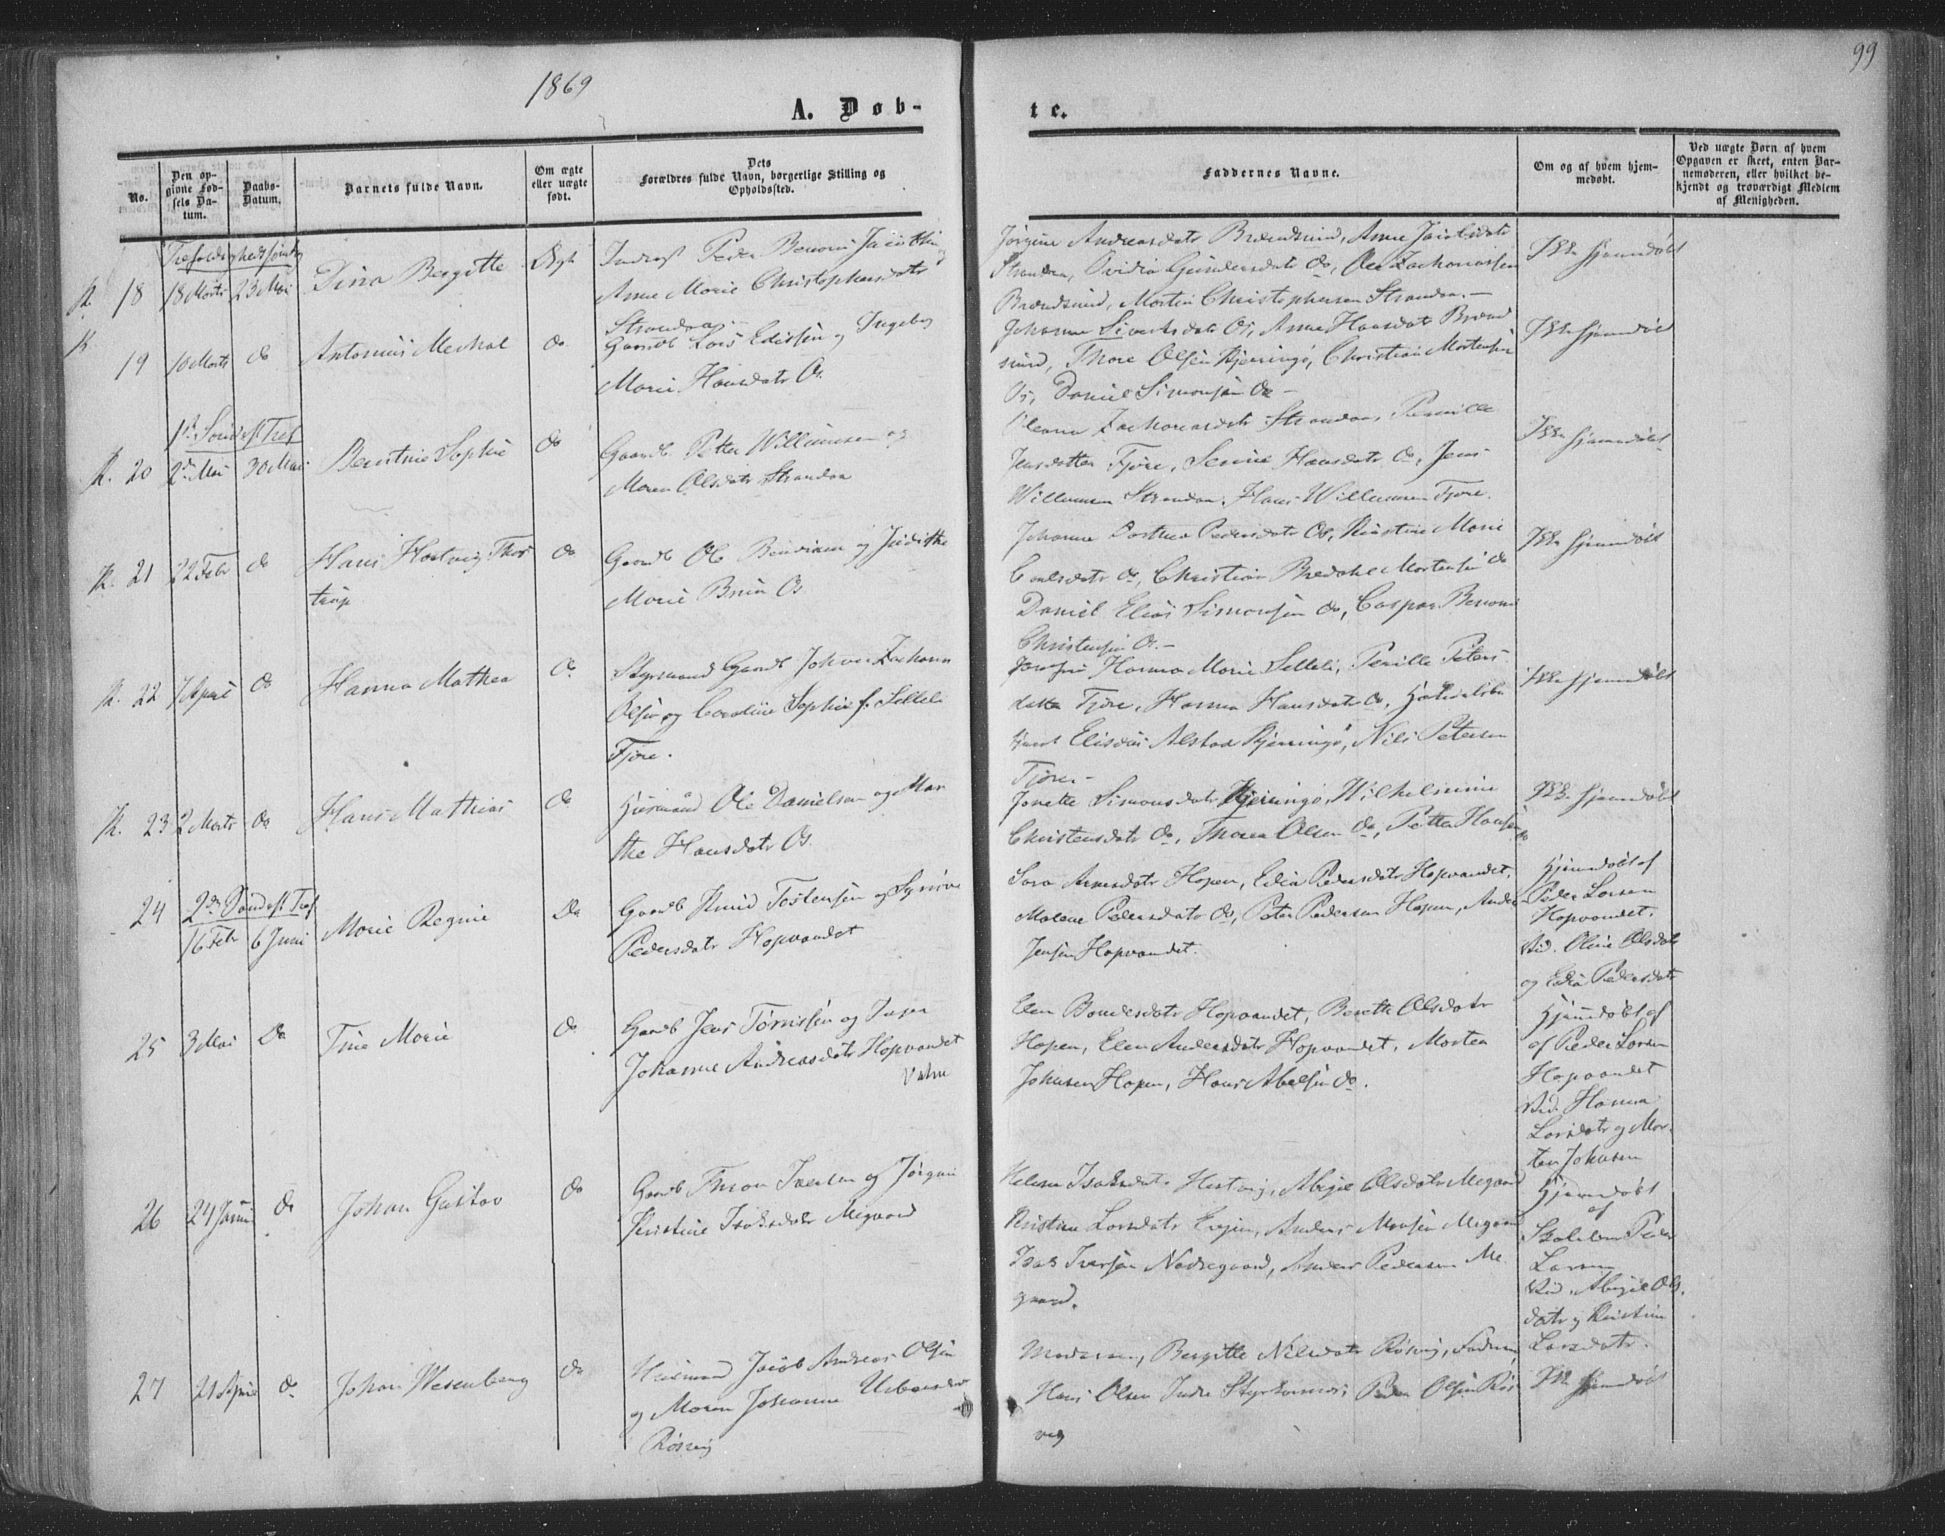 1869
99
A. Døb-
te.
No.
Den op-
givne Fød-
sels Da-
tum.
Daabs-
Datum.
Barnets fulde Navn.
Om ægte
eller uægte
født.
Dets
Forældres fulde Navn, borgerlige Stilling og
Opholdssted.
Faddernes Navne.
Om og af hvem hjem-
medøbt.
Ved uægte Børn af hvem
Opgaven er skeet, enten Bar-
nemoderen, eller hvilket be-
kjendt og troværdigt Medlem
af Menigheden.
18 18 Marts 23 Mai Dina Bergitte Ægt
Inderst Peder Benoni
Anne Marie Christophersdatr
Strandaa
Jørgine Andreasdatr Brændsund, Anne Jacobsdatr
Strandaa, Ovidia Gundersdatr do, Ole Zachariassen
Brændsund, Morten Christophersen Strandaa.
Ikke hjemmedøbt
19 10 Marts do Antonius Mechal do
Gaardb Lars Edissen og Ingeborg
Marie Hansdatr Os.
Johanne Sivertsdatr Os, Anne Hansdatr Brænd
sund, Thore Olsen Kjerringø, Christian Mortensen
Os, Daniel Simonsen do
Ikke hjemmedøbt
20 2den Mai 30 Mai Berntine Sophie do
Gaardb Petter Willumsen og
Maren Olsdatr Strandaa
Zachariasdatr Strandaa, Pernille
Jensdatter Fjøre, Hansdatr do, Jens
Willumsen Strandaa, Hans Willumsen Fjøre.
Ikke hjemmedøbt
21 22 Febr do Hans Hartvig Thos
trup do
Gaardb Ole Benonisen og Judithe
Marie Bruun Os
Johanne Pedersdatr Os, Kirstine Marie
do, Christian Bredahl Mortensen do
Daniel Elias Simonsen do, Caspar Benoni
Christensen Os.
Ikke hjemmedøbt
22 7 April do Hanna Mathea do
Styrmand Gaardb Johan Zacharias
Olsen og Caroline Sophie f. Selleli
Fjøre.
Jomfru Hanna Marie Selleli, Pernille Peters
datter Fjøre, Hanna Hansdatr do,
Elisæus Alstad Kjerringø, Nils Petersen
Fjøre.
Ikke hjemmedøbt
23 2 Marts do Hans Mathias do
Husmand Ole Danielsen og Mar
the Hansdatr Os.
Jonette Simonsdatr Kjerringø, Wilhelmine
Christensdatr do, Thomas Olsen do, Petter Hansen do
Ikke hjemmedøbt
24 16 Febr 6 Juni Marie Regine Do
Gaardb Knud Tostensen og
Pedersdatr Hopvandet
Sara Arnesdatr Hopen, Edia Pedersdatr Hopvandet,
Malene Pedersdatr do, Peter Pedersen Hopen, Andr
Jensen Hopvandet.
Hjemdøbt af
Peder Larsen
Hopvandet.
Vid. Oline Olsdatr
og Edia Pedersdatr
25 3 Mai Do Tine Marie do
Gaardb Jens Tønnissen og Inger
Johanne Andreasdatr Hopvandet
Elen Hopvandet, Berethe Olsdatr
Hopen, Elen Andersdatr Hopvandet, Morten
Johnsen Hopen, Hans Abelsen do.
Hjemdøbt af
af Peder Larsen
Hopvandet
Vid. Hanna
Larsdatr og Mor-
ten Johnsen
26 24 Januar do Johan Gustav do
Gaardb Thron Iversen og Jørgine
Kirstine Isaksdatr Megaard
Helena Isaksdatr Abigel Olsdatr Megaard
Kristine Larsdatr Anders Monsen Megaard
Isak Iversen Nedregaard, Anders Pedersen Me
gaard.
Hjemdøbt
af
Skolelærer Peder
Larsen
Vid. Abigel Ols
datr og Kristine
Larsdatr.
27 21 April do Johan Wesenberg do
Husmand Jacob Andreas Olsen
og Maren Johanne
Røsvig
Bergitte Nilsdatr Røsvig,
Hans Olsen Peder Olsen Røs
vig
Ikke hjemmedøbt